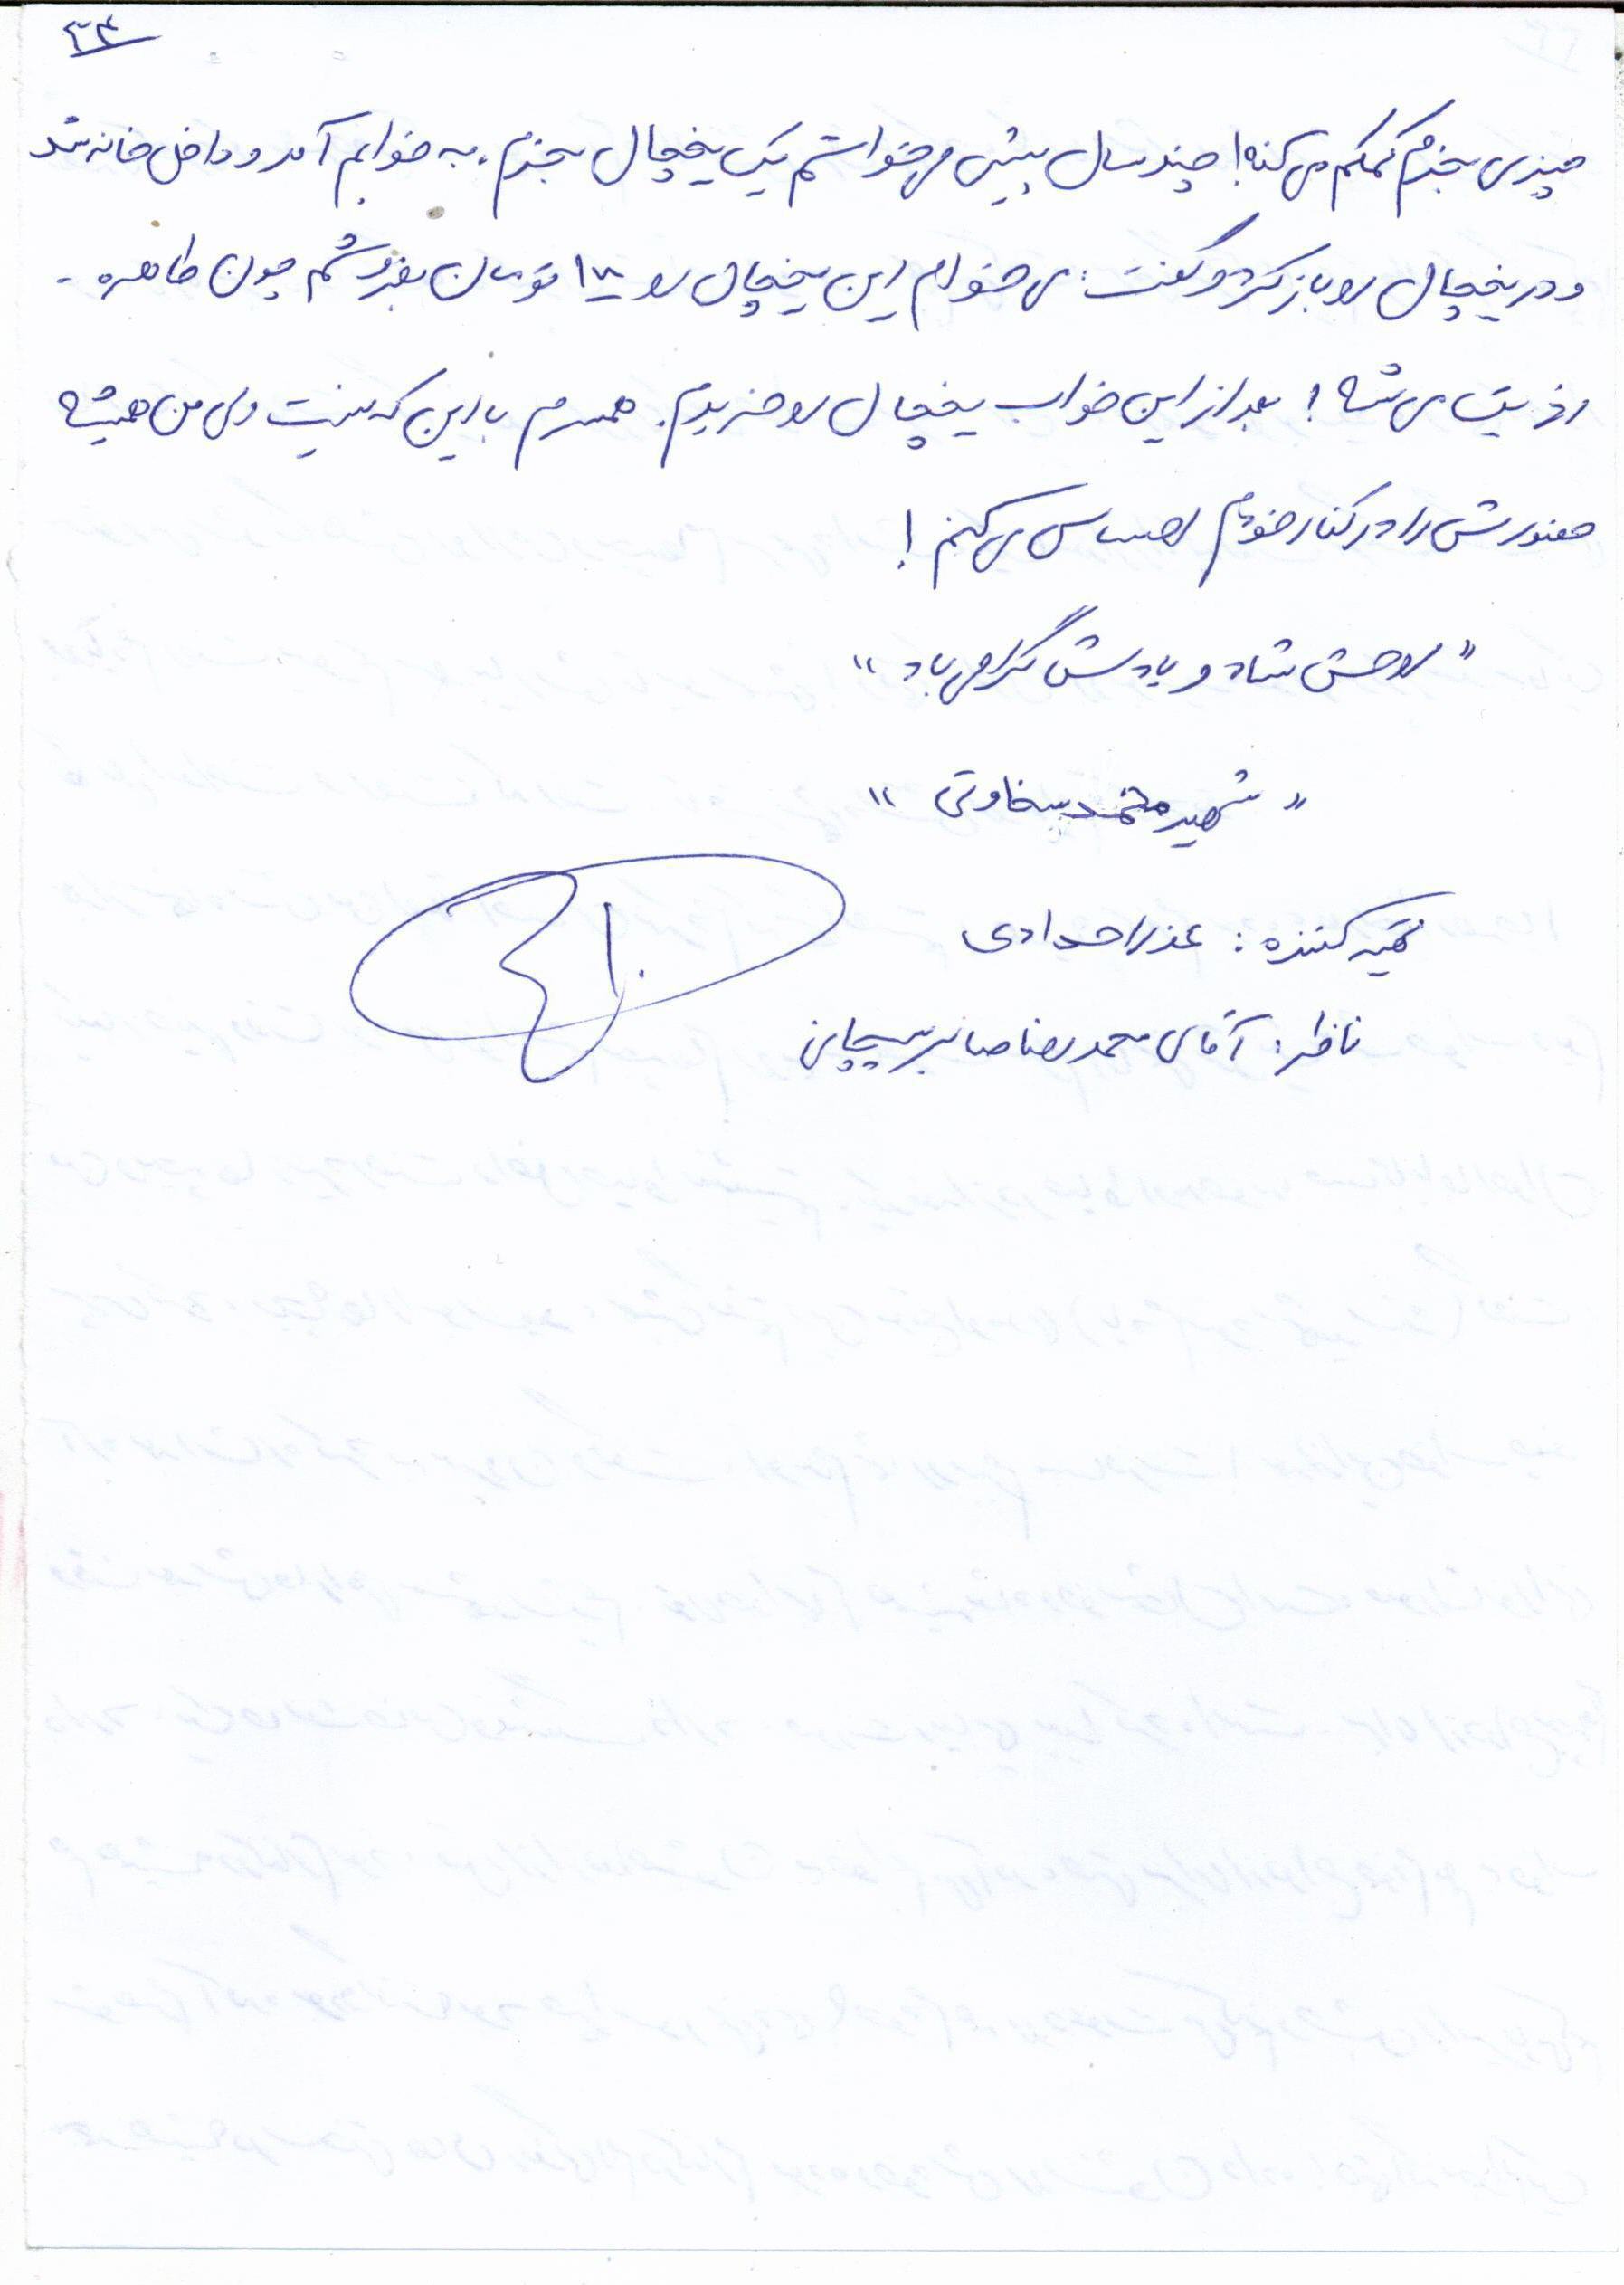 ۳۴
چیزی بخرم کمکم می‌کنه! چند سال پیش می‌خواستم یک یخچال بخرم. به خوابم آمد و داخل خانه شد
و در یخچال رو باز کرد و گفت: می‌خوام این یخچال رو تومان بفروشم چون طاهره
اذیت می‌شه! بعد از این خواب یخچال رو خریدم. همسرم با این که نیست ولی من همیشه
حضورش را در کنار خودم احساس می‌کنم!
"روحش شاد و یادش گرامی باد"
"شهید محمد سخاوتی"
تهیه کننده: عذرا حدادی
ناظر: آقای محمدرضا صابر